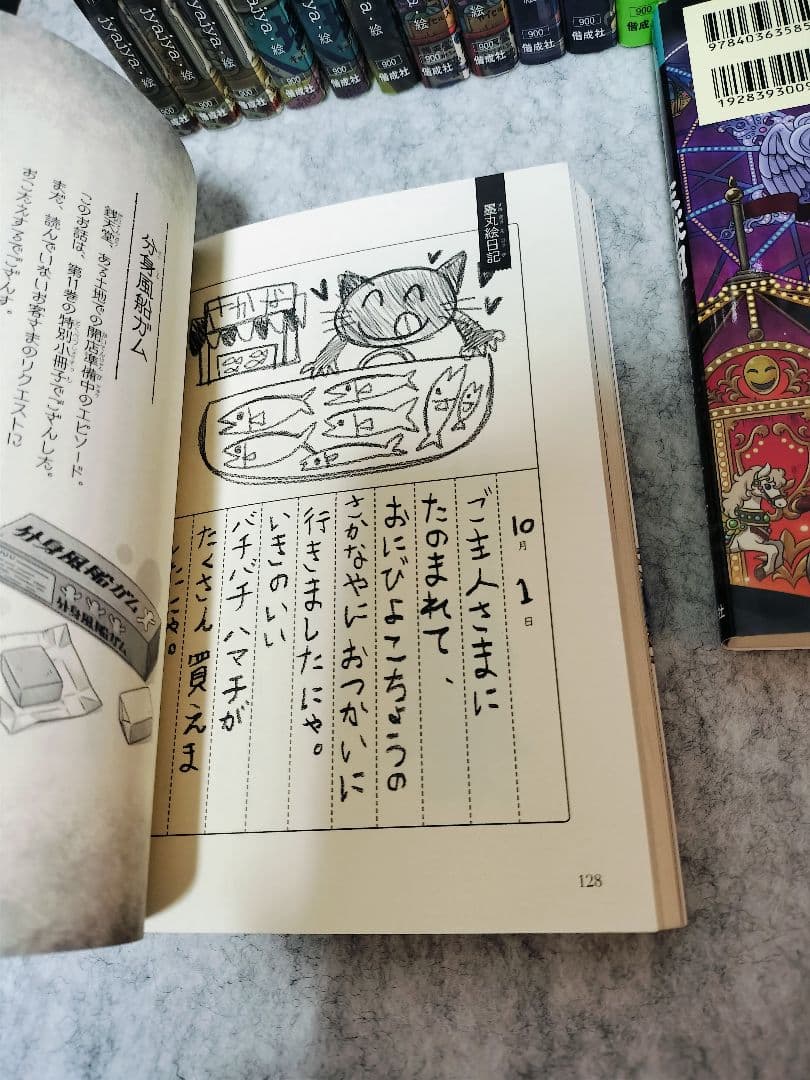 jyajya.絵
jyajya.絵
jyajya.絵
jyajya.絵
絵
絵
900
偕成社
900
偕成社
900
偕成社
900
偕成社
900
偕成社
900
偕成社
900
偕成社
900
偕成社
97840363585
1928393009
墨丸絵日記
10月1日
ご主人さまに
たのまれて、
おにびよこちょうの
さかなやにおつかいに
行きましたにゃ。
いきのいい
バチバチハマチが
たくさん買えま
したにゃ。
128
分身風船ガム
銭天堂、ある土地での開店準備中のエピソード。
このお話は、第11巻の特別小冊子でござんした。
まだ、読んでいないお客さまのリクエストに
おこたえするでござんす。
分身風船ガム
分身風船ガム